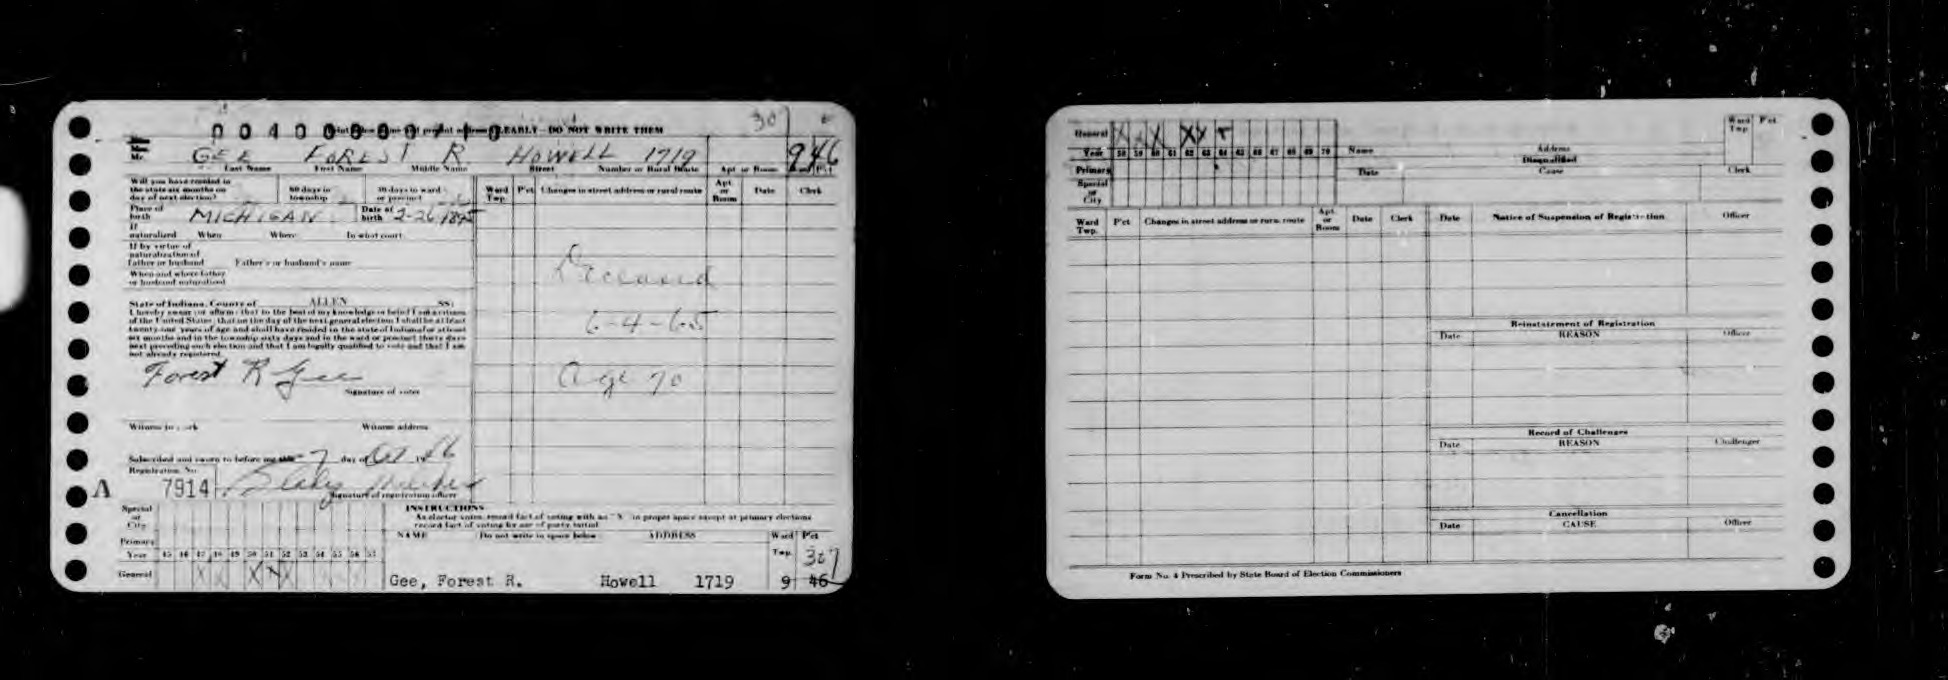 307
CLEARLY - DO NOT WRITE THEM
Mr. GEE FOREST R. HOWELL 1719 9 46
Last Name First Name Middle Name Street Number or Rural Route Apt or Room
Will you have resided in
the state six months on
day of next election? 60 days in
township 30 days in ward
or precinct
Ward
Twp. P'ct Changes in street address or rural route Apt
or
Room Date Clerk
Place of
birth MICHIGAN Date of
birth 2-26-1895
If
naturalized When Where In what court
If by virtue of
naturalization of
father or husband Father's or husband's name
When and where father
or husband naturalized
Deceased
6-4-65
Age 70
State of Indiana, County of ALLEN SS:
I hereby swear (or affirm) that to the best of my knowledge or belief I am a citizen
of the United States; that on the day of the next general election I shall be at least
twenty-one years of age and shall have resided in the state of Indiana for at least
six months and in the township sixty days and in the ward or precinct thirty days
next preceding such election and that I am legally qualified to vote and that I am
not already registered.
Forest R Gee
Signature of voter
Witness to mark Witness address
Subscribed and sworn to before me this 7 day of Oct 19 46
Registration No.
A 7914
Signature of registration officer
Special
or
City
Primary
Year 45 46 47 48 49 50 51 52 53 54 55 56 57
General X X X X X
INSTRUCTIONS
As elector votes, record fact of voting with an "X" in proper space except at primary elections
record fact of voting by use of party initial
NAME (Do not write in space below) ADDRESS Ward
Twp. P'ct
307
Gee, Forest R. Howell 1719 9 46
General X X X X X
Year 58 59 60 61 62 63 64 65 66 67 68 69 70
Primary
Special
or
City
Name Address Ward
Twp. P'ct
Disqualified
Date Cause Clerk
Ward
Twp. P'ct Changes in street address or rural route Apt.
or
Room Date Clerk
Date Notice of Suspension of Registration Officer
Reinstatement of Registration
Date REASON Officer
Record of Challenges
Date REASON Challenger
Cancellation
Date CAUSE Officer
Form No. 4 Prescribed by State Board of Election Commissioners